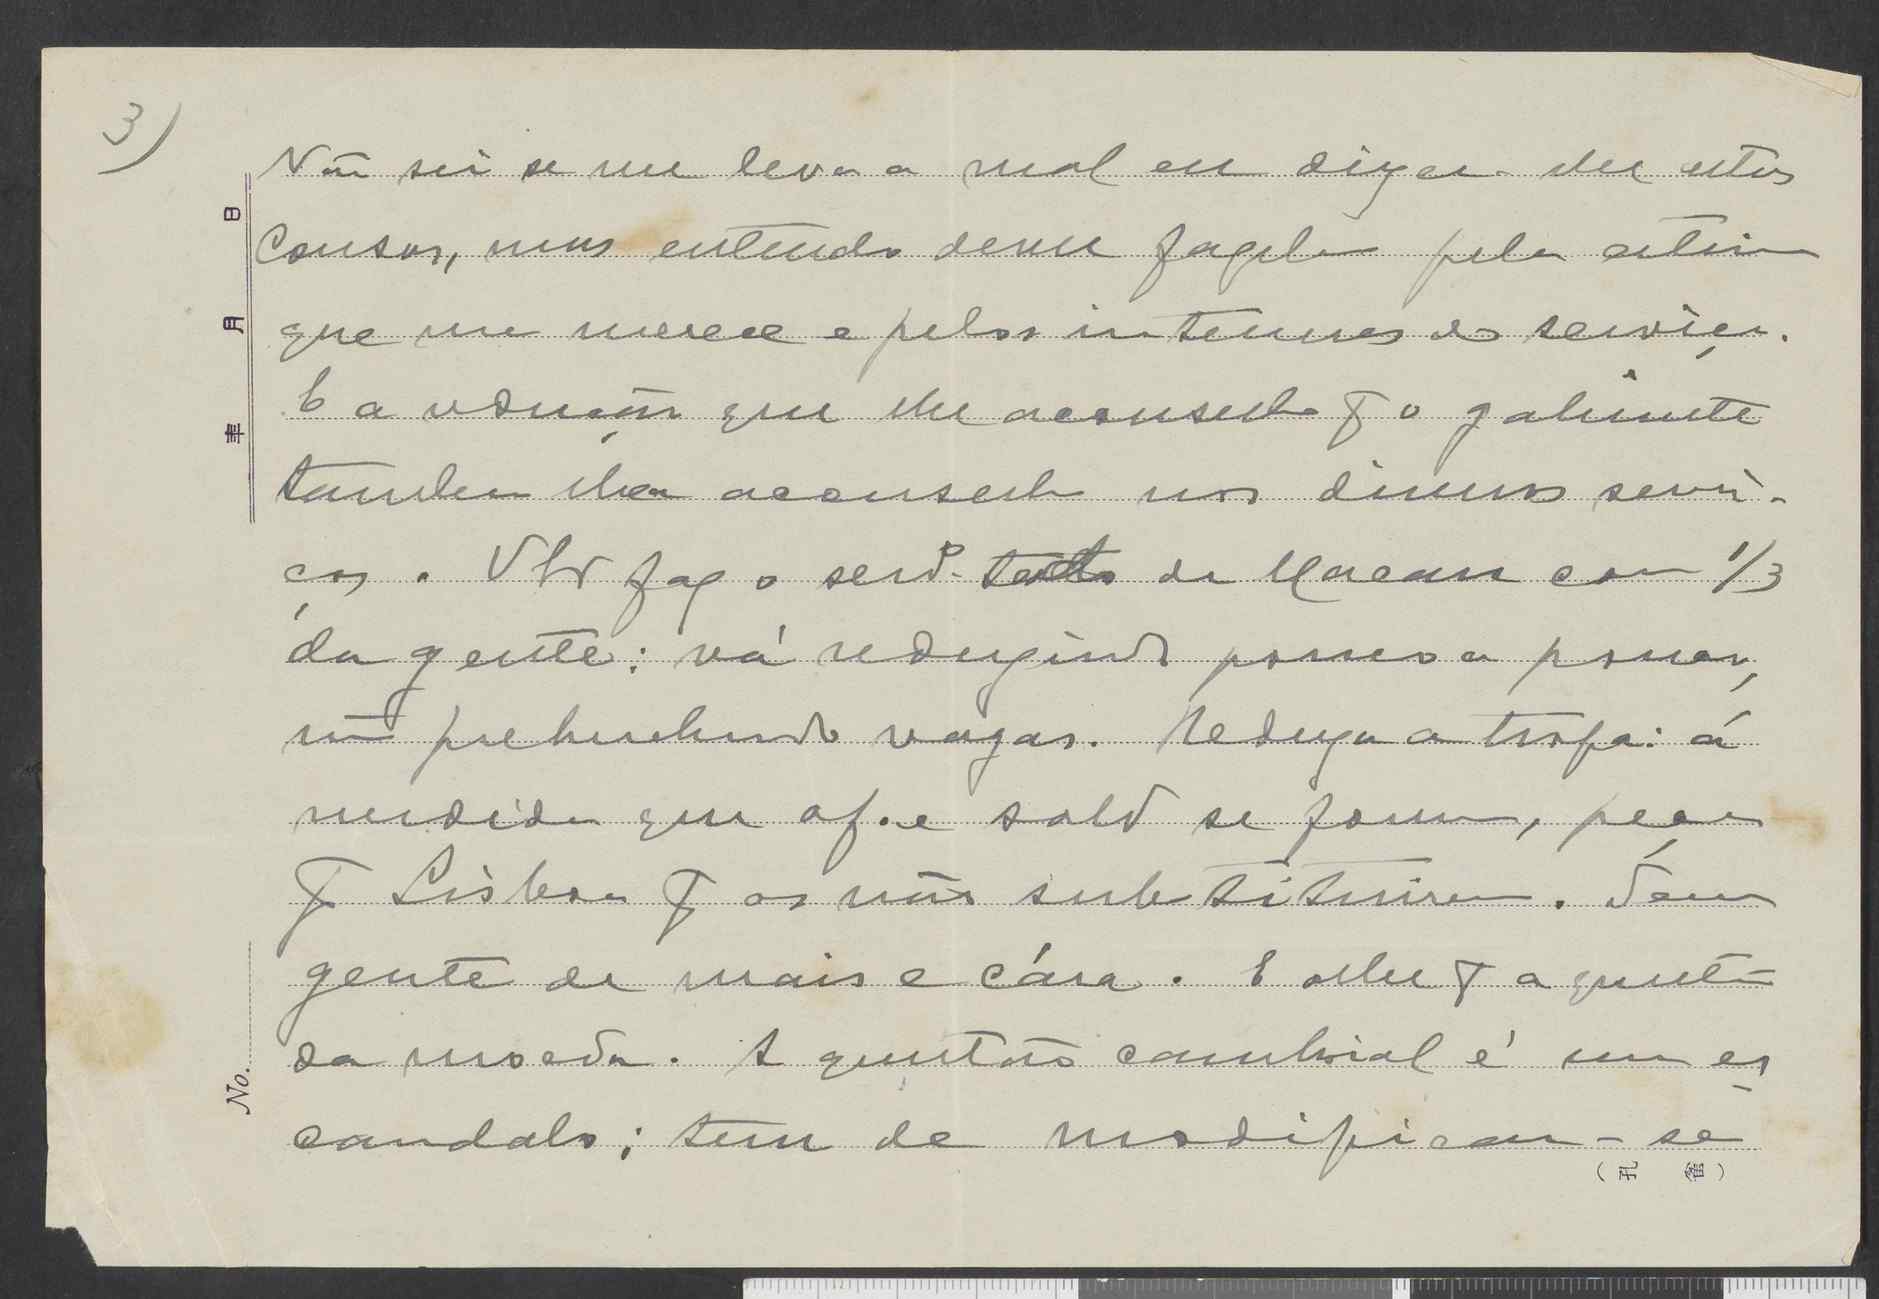 3)
Não sei se me leva a mal eu dizer-lhe estas
cousas, mas entendo dever fazel-o pela estima
que me merece e pelos interesses do serviço.
E a redução que lhe aconselho p̄ o gabinete
tambem lha aconselho nos diversos servi-
ços. V faz o serv.º todo de Macau com 1/3
da gente: vá reduzindo pouco a pouco,
não prehenchendo vagas. Reduza a tropa: á
medida que of. e sold se forem, peça
p̄ Lisboa p̄ os não substituirem. Tem
gente de mais e cára. E olhe p̄ a questão
da moeda. A questão cambial é um es
candalo; tem de modificar-se
日 月 年
No.
(孔 雀)